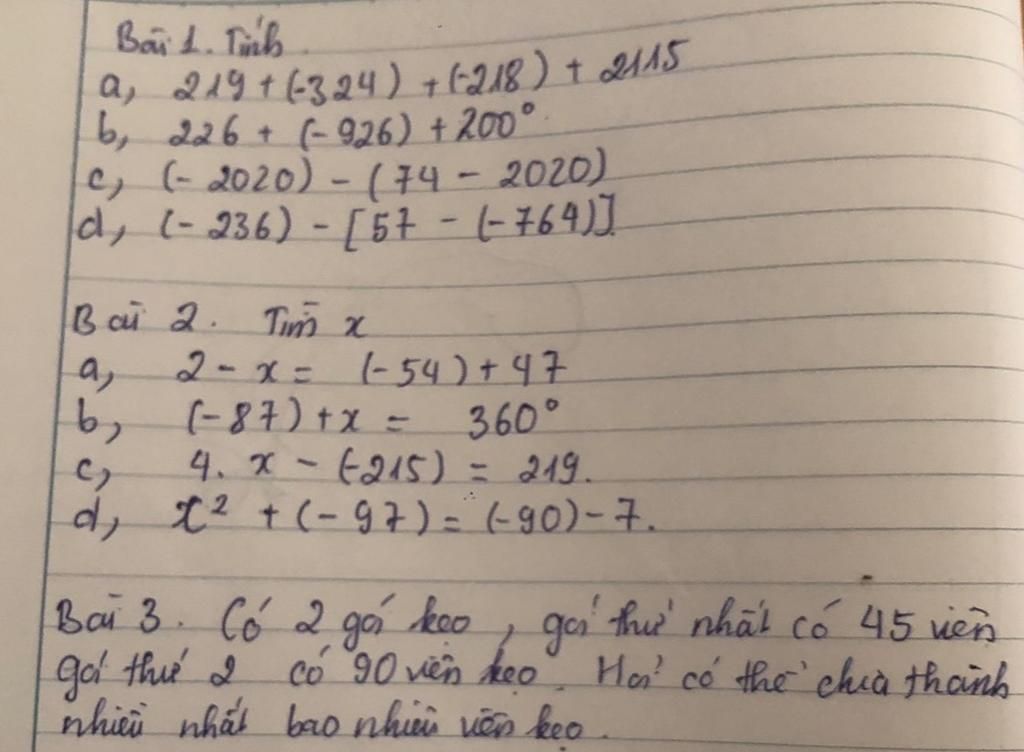 Bài 1. Tính
a, 219 + (-324) + (-218) + 2115
b, 226 + (-926) + 200°
c, (- 2020) - (74 - 2020)
d, (- 236) - [57 - (-764)]
Bài 2. Tìm x
a, 2 - x = (-54) + 47
b, (-87) + x = 360°
c, 4. x - (-215) = 219.
d, x² + (- 97) = (-90) - 7.
Bài 3. Có 2 gói kẹo, gói thứ nhất có 45 viên
gói thứ 2 có 90 viên kẹo. Hỏi có thể chia thành
nhiều nhất bao nhiêu viên kẹo.